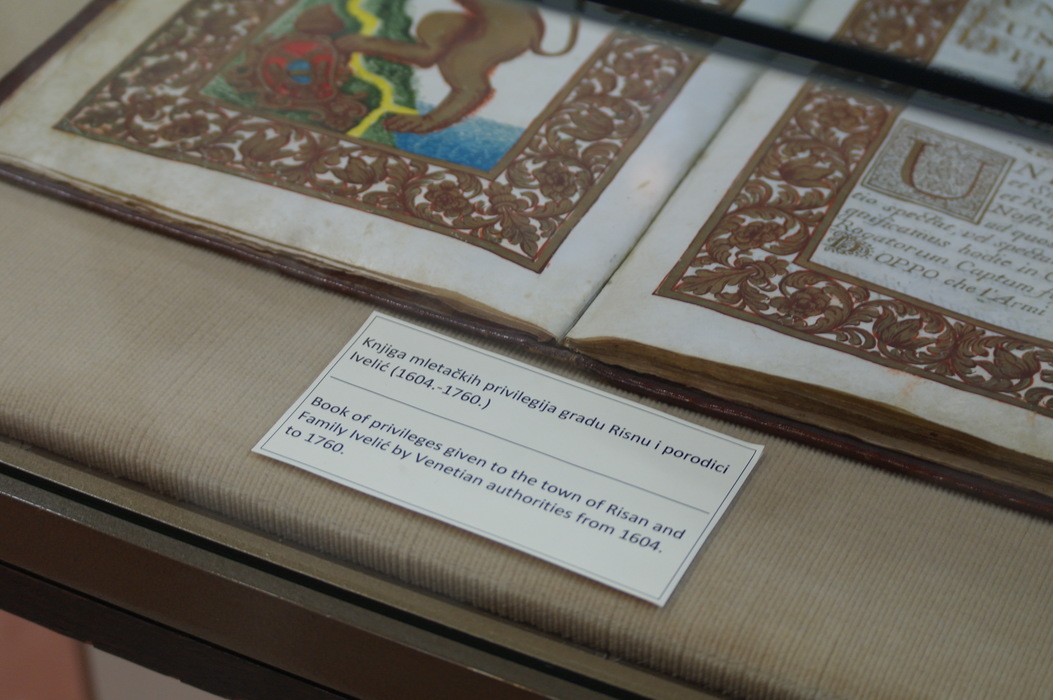 Knjiga mletačkih privilegija gradu Risnu i porodici
Ivelić (1604.-1760.)
Book of privileges given to the town of Risan and
Family Ivelić by Venetian authorities from 1604.
to 1760.
U
et
Nost
ad quo
quificamus hodie in
vocatorum Captum
OPPO che l'Armi